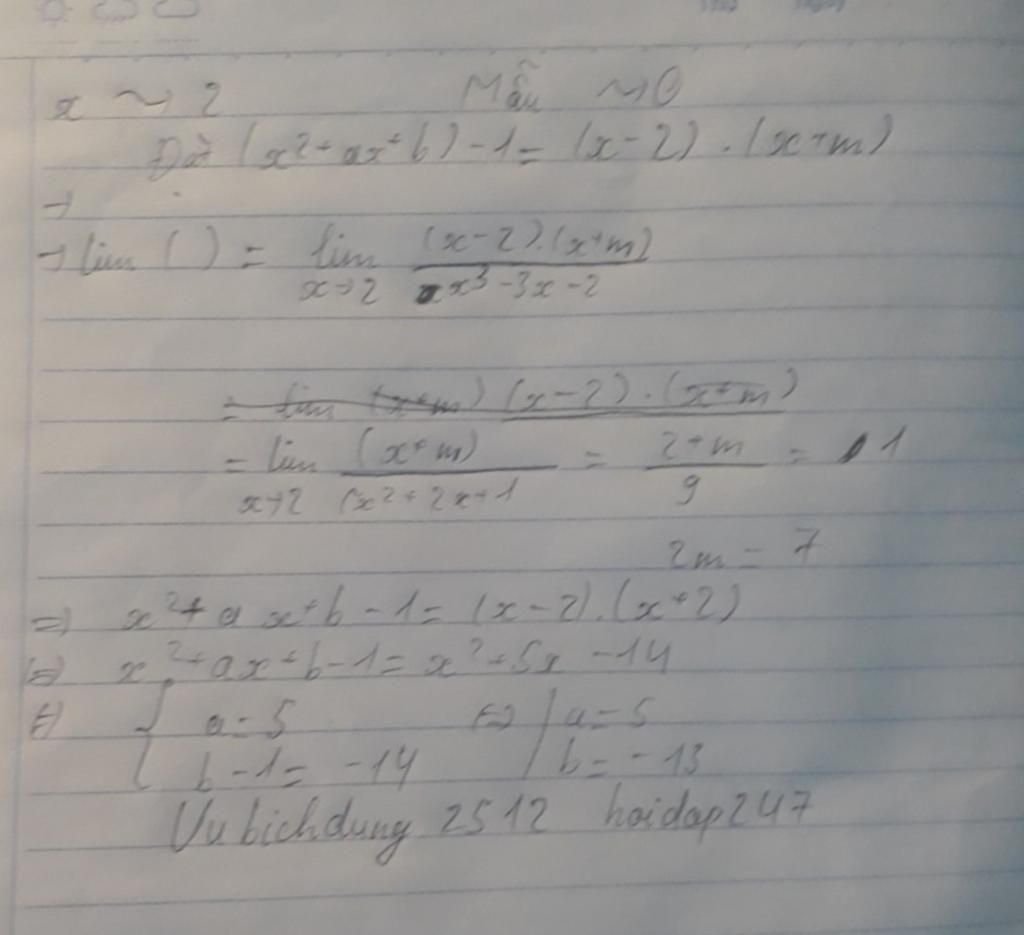 x ~> 2 Mẫu ~> 0
Đặt (x² + ax + b) - 1 = (x - 2) . (x + m)
→
→ lim ( ) = lim x→2 (x - 2).(x + m) / x³ - 3x - 2
= lim (x + m) (x - 2) . (x + m)
= lim x→2 (x + m) / (x² + 2x + 1 = 2 + m / 9 = 1
2m = 7
=> x² + a x + b - 1 = (x - 2).(x + 2)
<=> x² + ax + b - 1 = x² + 5x - 14
<=> { a = 5 <=> { a = 5
b - 1 = -14 b = -13
Vubichdung 2512 hoidap247